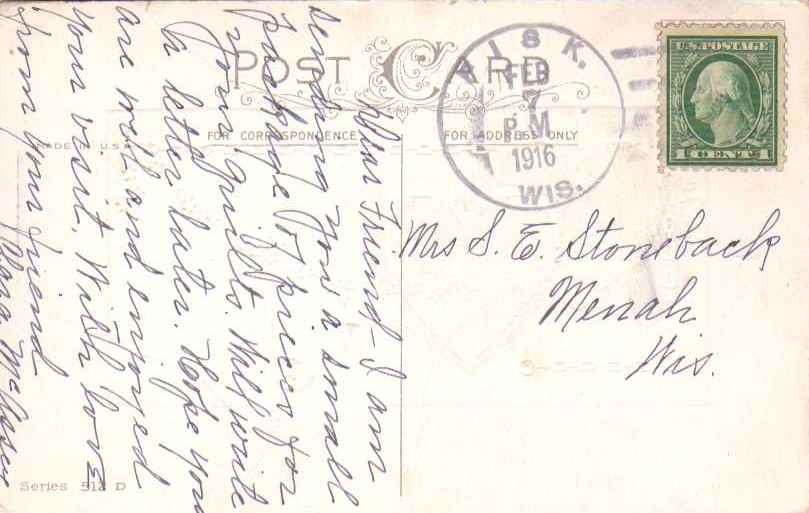 POST CARD
FOR CORRESPONDENCE
FOR ADDRESS ONLY
MADE U.S.A.
FISK.
FEB
7
P M
1916
WIS.
U.S. POSTAGE
1 CENTS 1
Dear Friend - I am
sending you a small
package of pieces for
your quilts. Will write
a letter later. Hope you
are well and enjoyed
your visit. With love
from your friend
Clara
Mrs S. E. Stoneback
Menah
Wis.
Series 512 D